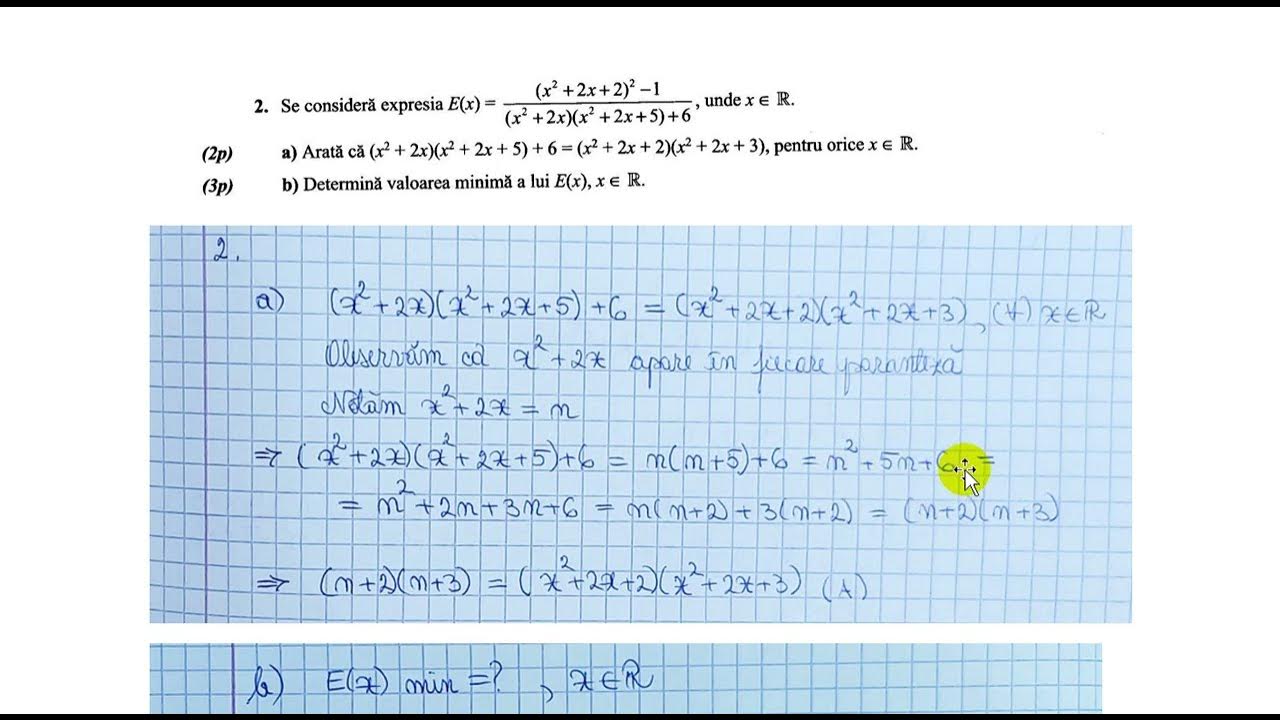 2. Se consideră expresia E(x) = ((x² + 2x + 2)² − 1) / ((x² + 2x)(x² + 2x + 5) + 6), unde x ∈ ℝ.
(2p) a) Arată că (x² + 2x)(x² + 2x + 5) + 6 = (x² + 2x + 2)(x² + 2x + 3), pentru orice x ∈ ℝ.
(3p) b) Determină valoarea minimă a lui E(x), x ∈ ℝ.
2.
a) (x² + 2x)(x² + 2x + 5) + 6 = (x² + 2x + 2)(x² + 2x + 3), (∀) x ∈ ℝ
Observăm că x² + 2x apare în fiecare paranteză
Notăm x² + 2x = n
⇒ (x² + 2x)(x² + 2x + 5) + 6 = n(n + 5) + 6 = n² + 5n + 6 =
= n² + 2n + 3n + 6 = n(n + 2) + 3(n + 2) = (n + 2)(n + 3)
⇒ (n + 2)(n + 3) = (x² + 2x + 2)(x² + 2x + 3) (A)
b) E(x) min = ? , x ∈ ℝ